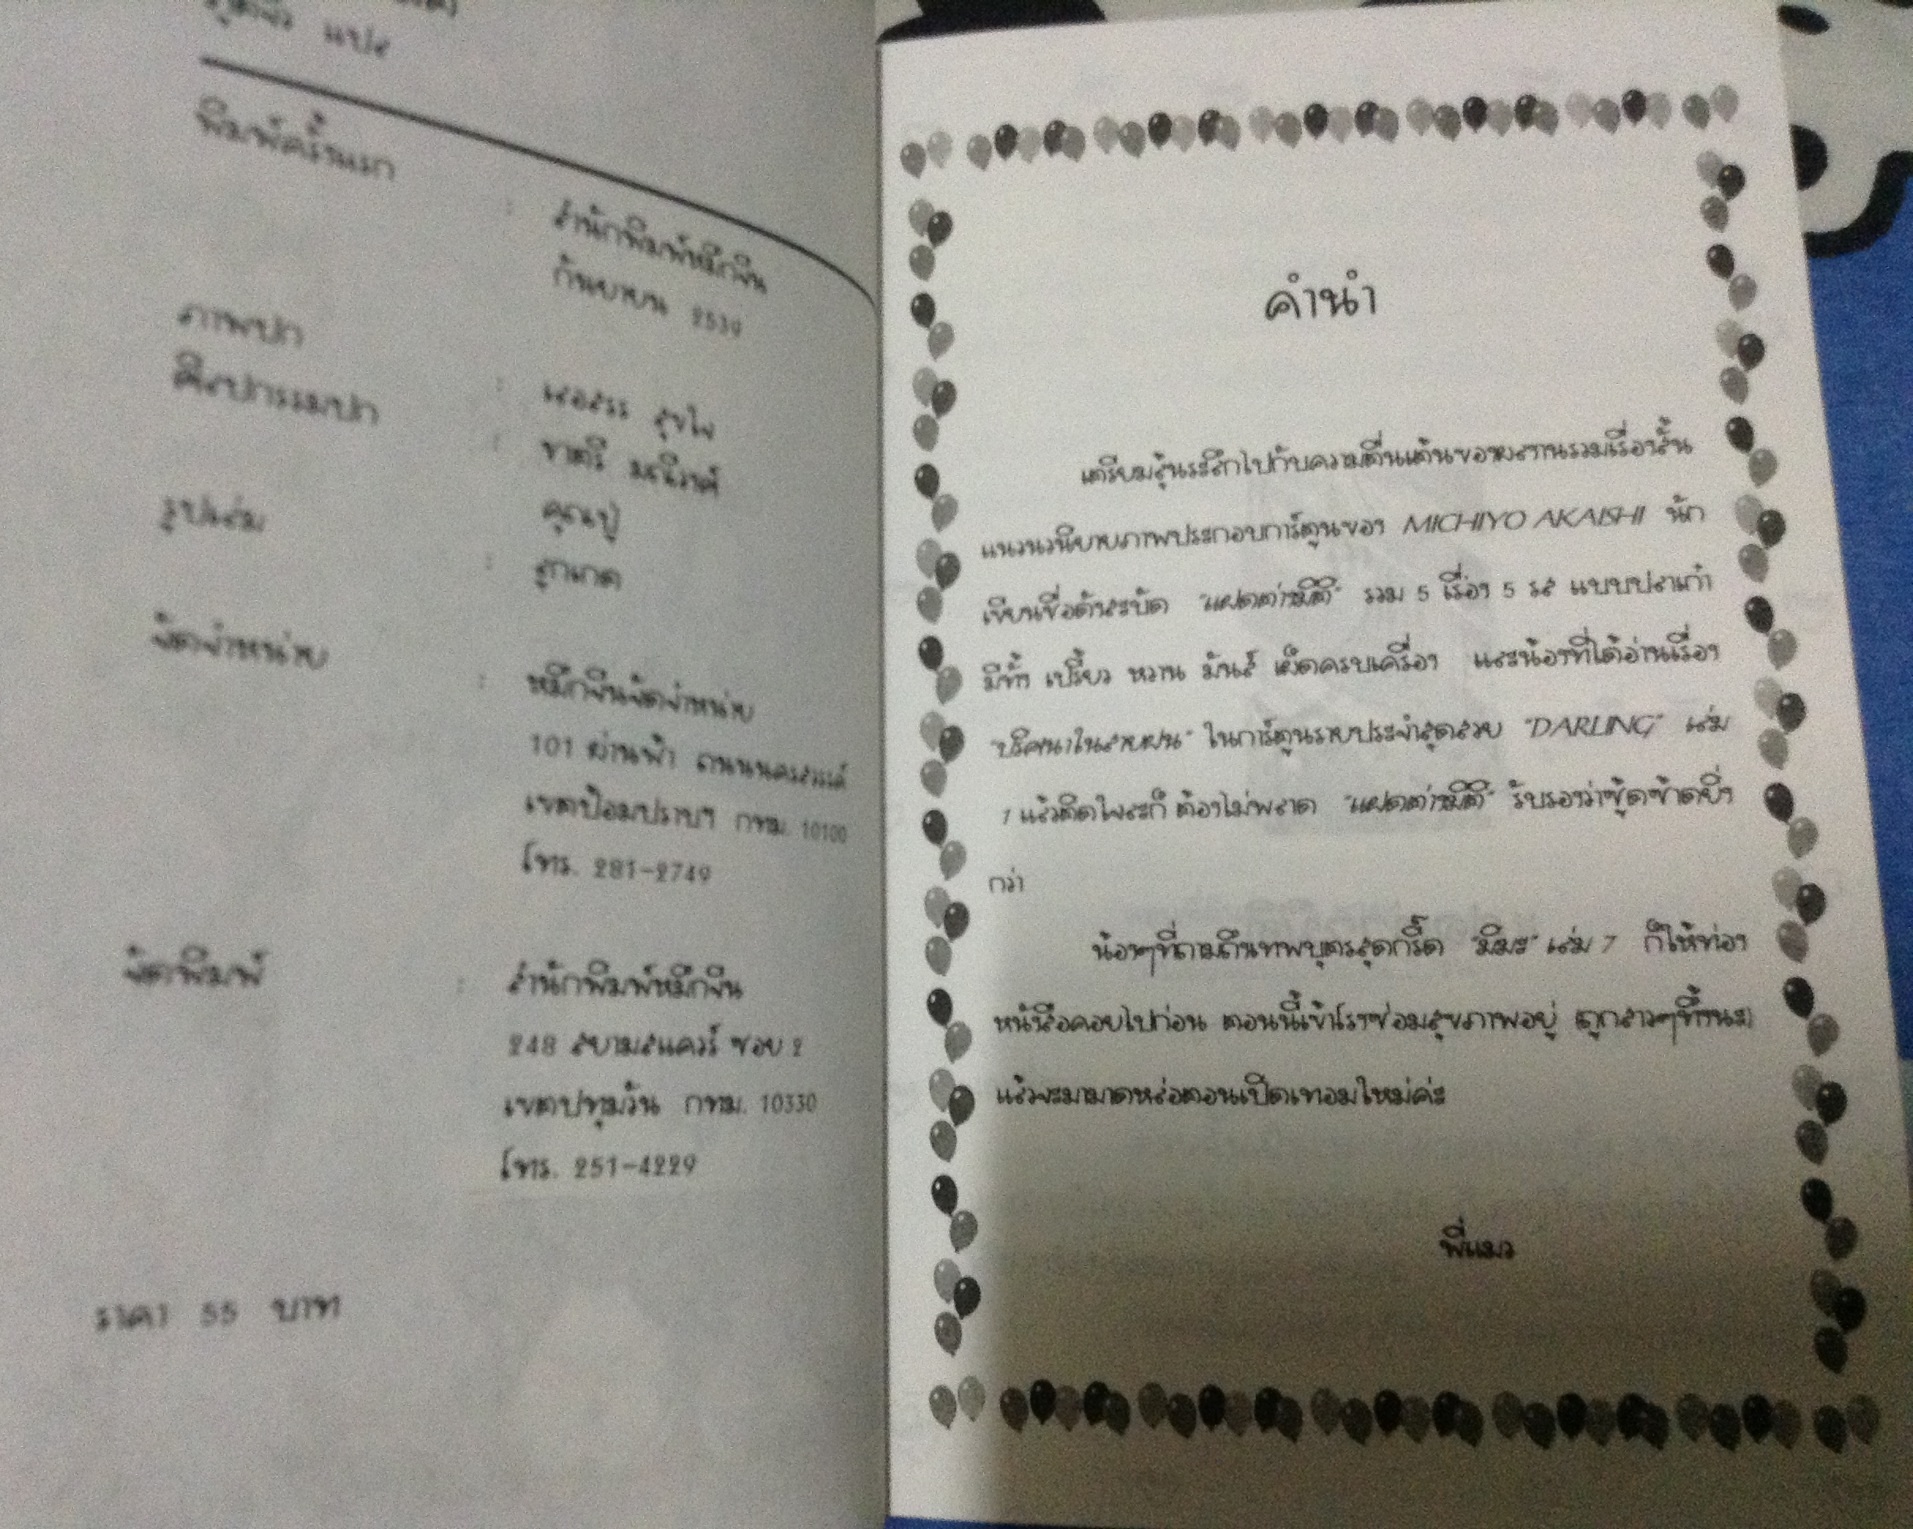 แปล
พิมพ์ครั้งแรก : สำนักพิมพ์หมึกจีน
กันยายน 2539
ภาพปก : เลอสรร สุขใจ
ศิลปกรรมปก : ชาตรี มณีวงศ์
รูปเล่ม : คุณปู่
ลูกเกด
จัดจำหน่าย : หมึกจีนจัดจำหน่าย
101 ผ่านฟ้า ถนนนครสวรรค์
เขตป้อมปราบฯ กทม. 10100
โทร. 281-2749
จัดพิมพ์ : สำนักพิมพ์หมึกจีน
248 สยามสแควร์ ซอย 2
เขตปทุมวัน กทม. 10330
โทร. 251-4229
ราคา 55 บาท
คำนำ
เตรียมลุ้นระลึกไปกับความตื่นเต้นของผลงานรวมเรื่องสั้น
แนวนวนิยายภาพประกอบการ์ตูนของ MICHIYO AKAISHI นัก
เขียนชื่อดังระบัด "แฝดต่างมิติ" รวม 5 เรื่อง 5 รส แบบปลาเก๋า
มีทั้ง เปรี้ยว หวาน มันส์ เผ็ดครบเครื่อง และน้องที่ได้อ่านเรื่อง
"ปริศนาในสายฝน" ในการ์ตูนรายประจำสุดสวย "DARLING" เล่ม
1 แล้วติดใจละก็ ต้องไม่พลาด "แฝดต่างมิติ" รับรองว่าซู้ดซ้าดยิ่ง
กว่า
น้องๆที่ถามถึงเทพบุตรสุดกรี๊ด "มิมะ" เล่ม 7 ก็ให้ท่อง
หนังสือคอยไปก่อน ตอนนี้เข้าโรงซ่อมสุขภาพอยู่ (ถูกสาวๆทึ้งนะ)
แล้วจะมามาดหล่อตอนเปิดเทอมใหม่ค่ะ
พี่แมว